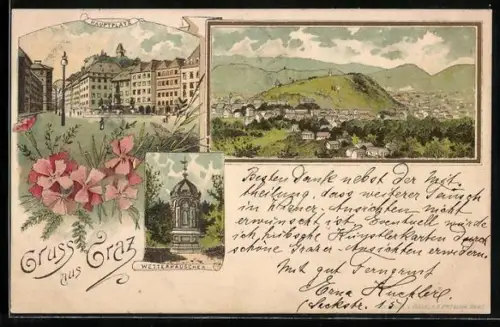 HAUPTPLATZ
Gruss
aus Graz
WETTERHÄUSCHEN
Besten Dank nebst der Mit-
theilung, dass weiterer Tausch
in kleiner Ansichten nicht
erwünscht ist. Eventuell würde
ich hübsche Künstlerkarten durch
schöne Grazer-Ansichten erwidern.
Mit gut Ferngruss
Erna